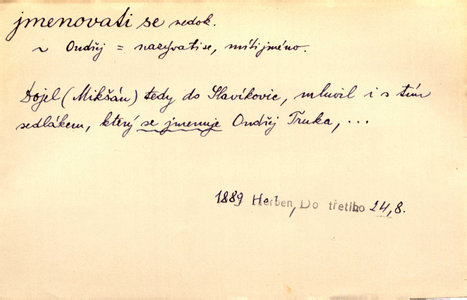 jmenovati se nedok.
~ Ondřej = nazývati se, míti jméno.
Dojel (Mikšán) tedy do Slavíkovic, mluvil i s tím
sedlákem, který se jmenuje Ondřej Truka, ...
1889 Herben, Do třetího 24, 8.